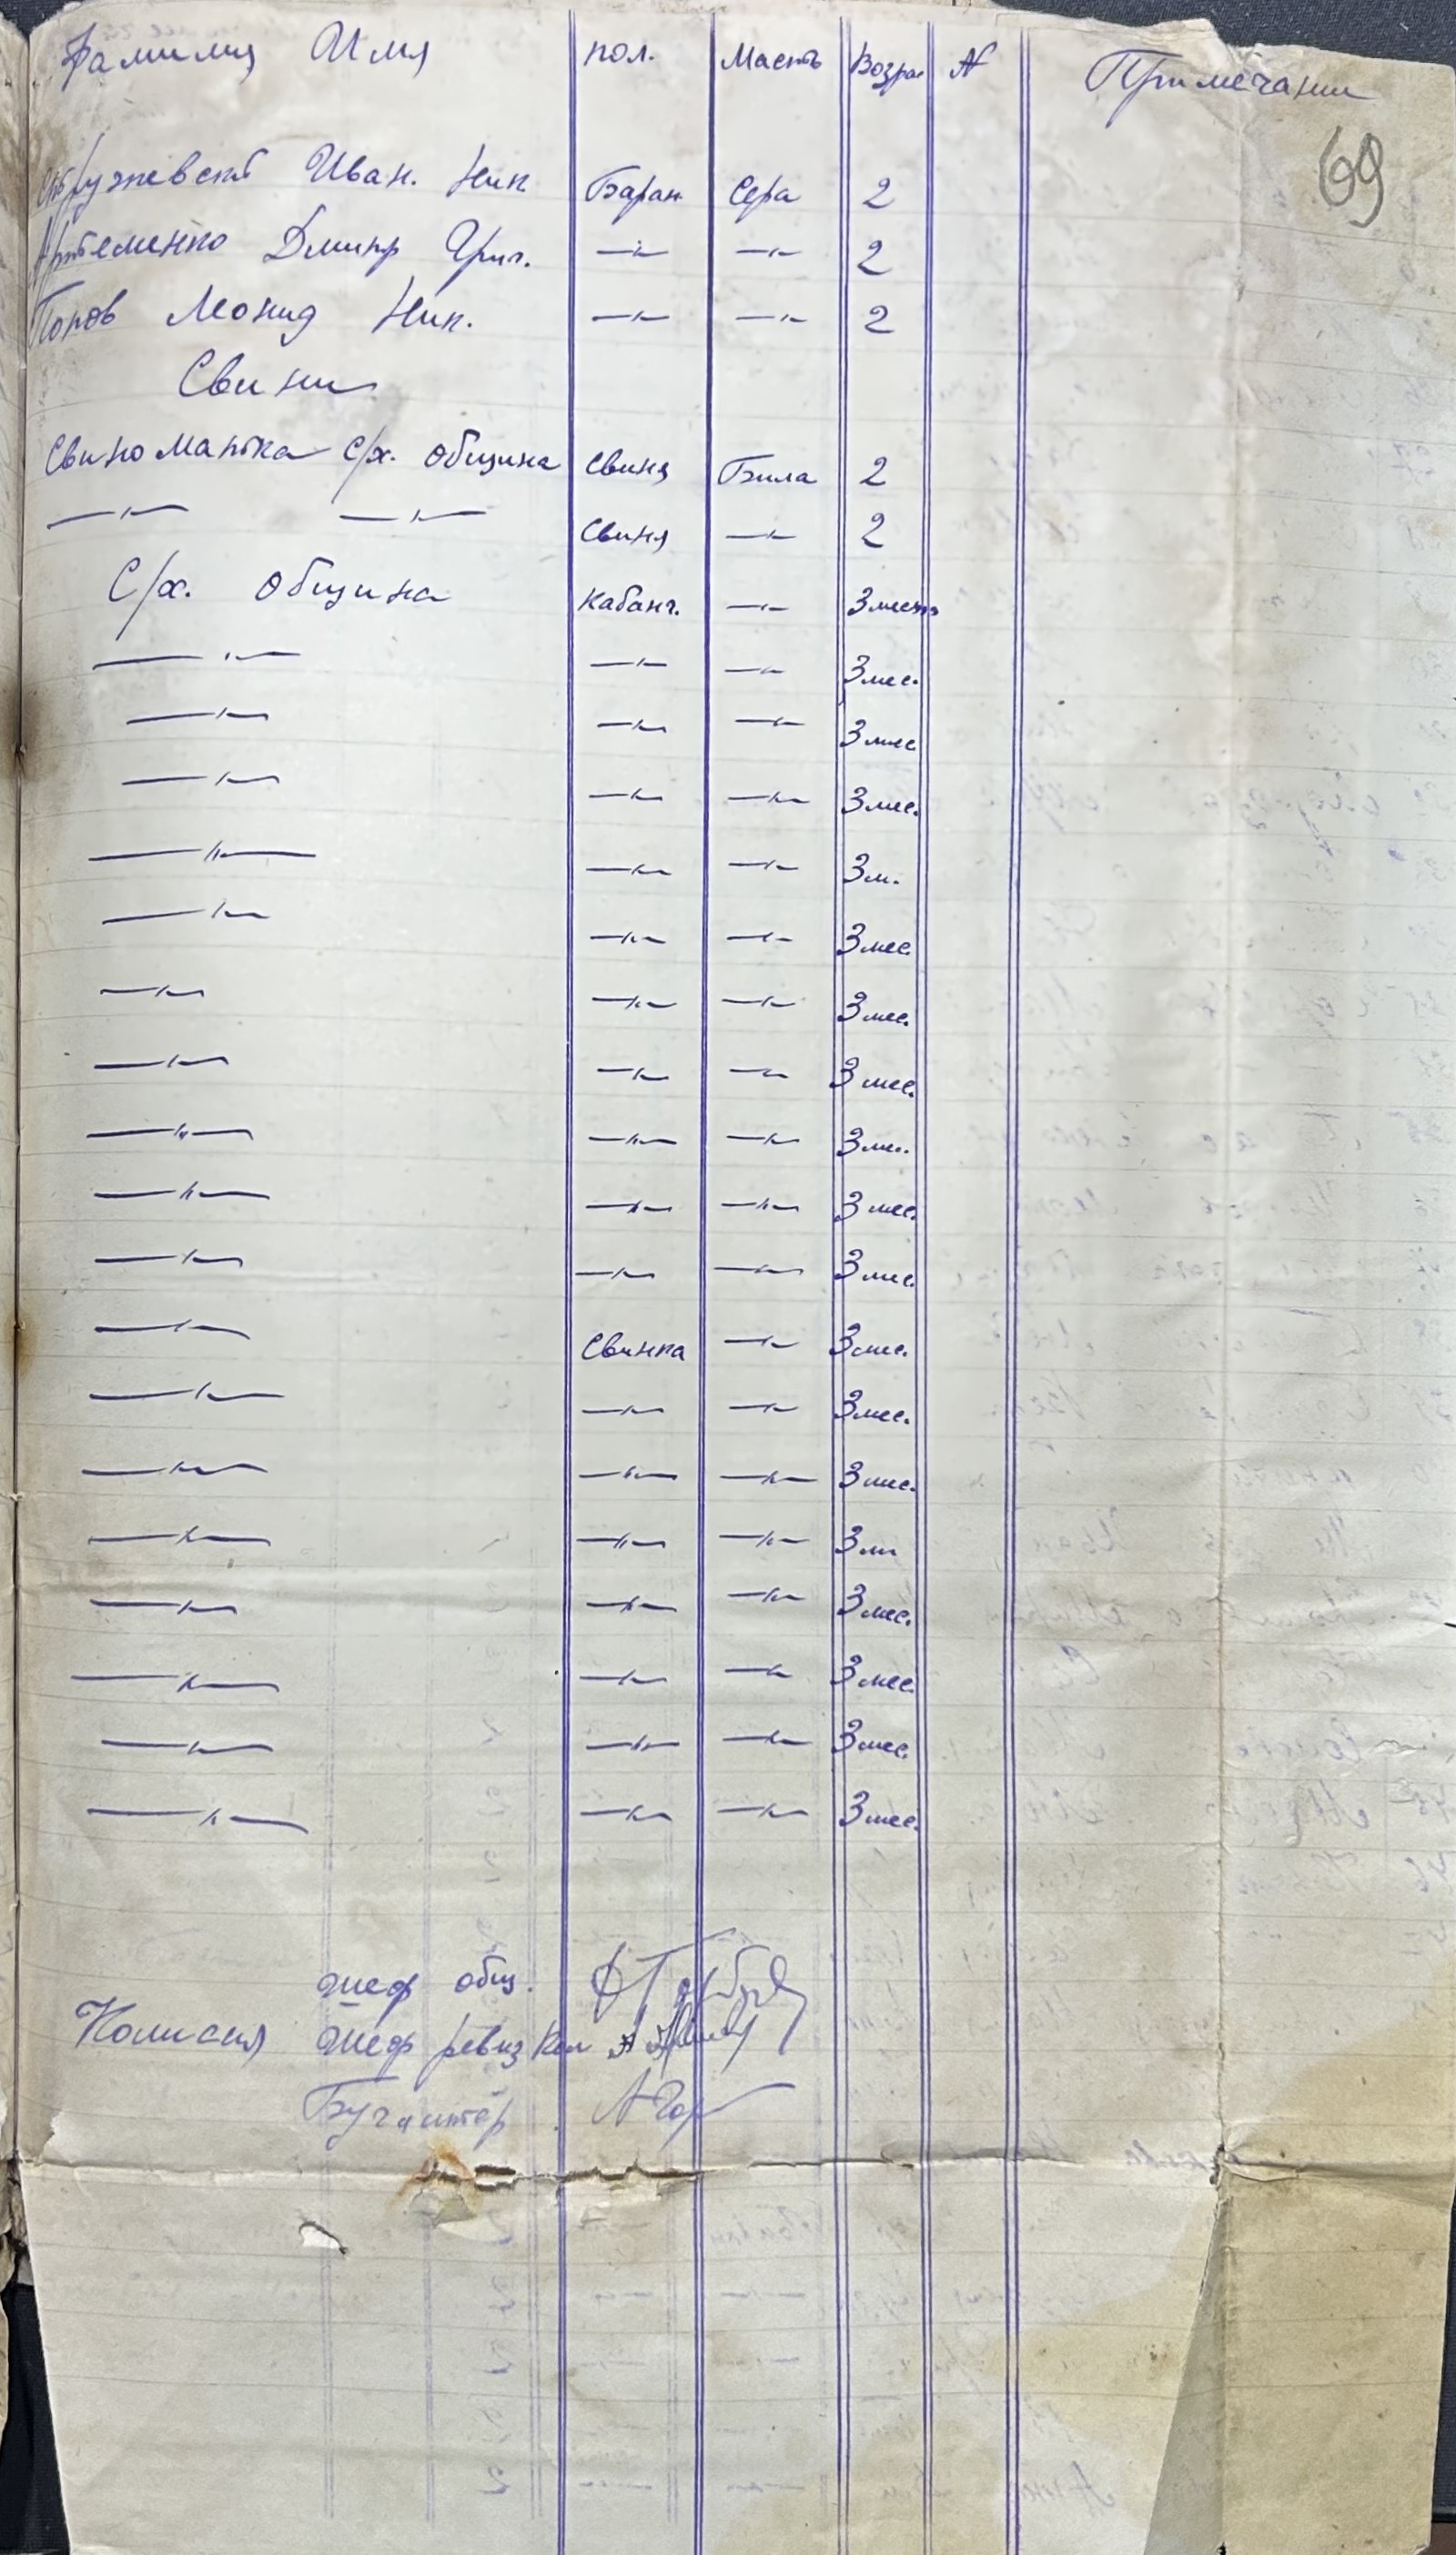 Фамилия Имя пол. Масть Возрас N Примечании
69
Иван. Ник Баран Сера 2
Артеменко Дмитр Григ. —〃— —〃— 2
Попов Леонид Ник. —〃— —〃— 2
Свини
Свиноматка С/х. община Свиня Била 2
—〃— —〃— Свиня —〃— 2
С/х. община Кабанч. —〃— 3 мест
—〃— —〃— —〃— 3 мес.
—〃— —〃— —〃— 3 мес
—〃— —〃— —〃— 3 мес.
—〃— —〃— —〃— 3 м.
—〃— —〃— —〃— 3 мес.
—〃— —〃— —〃— 3 мес.
—〃— —〃— —〃— 3 мес.
—〃— —〃— —〃— 3 ме.
—〃— —〃— —〃— 3 мес.
—〃— —〃— —〃— 3 мес.
—〃— Свинка —〃— 3 мес.
—〃— —〃— —〃— 3 мес.
—〃— —〃— —〃— 3 мес.
—〃— —〃— —〃— 3 ме
—〃— —〃— —〃— 3 мес.
—〃— —〃— —〃— 3 мес.
—〃— —〃— —〃— 3 мес.
—〃— —〃— —〃— 3 мес.
шеф общ.
Комисия шеф ревиз Ком
Бугалтер